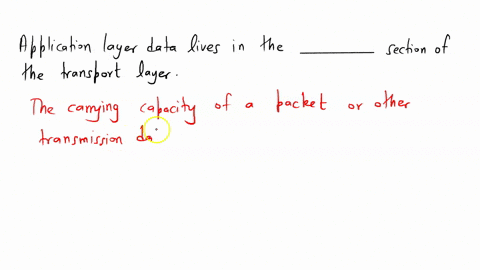 Application layer data lives in the ________ section of
the transport layer.
The carrying capacity of a packet or other
transmission da